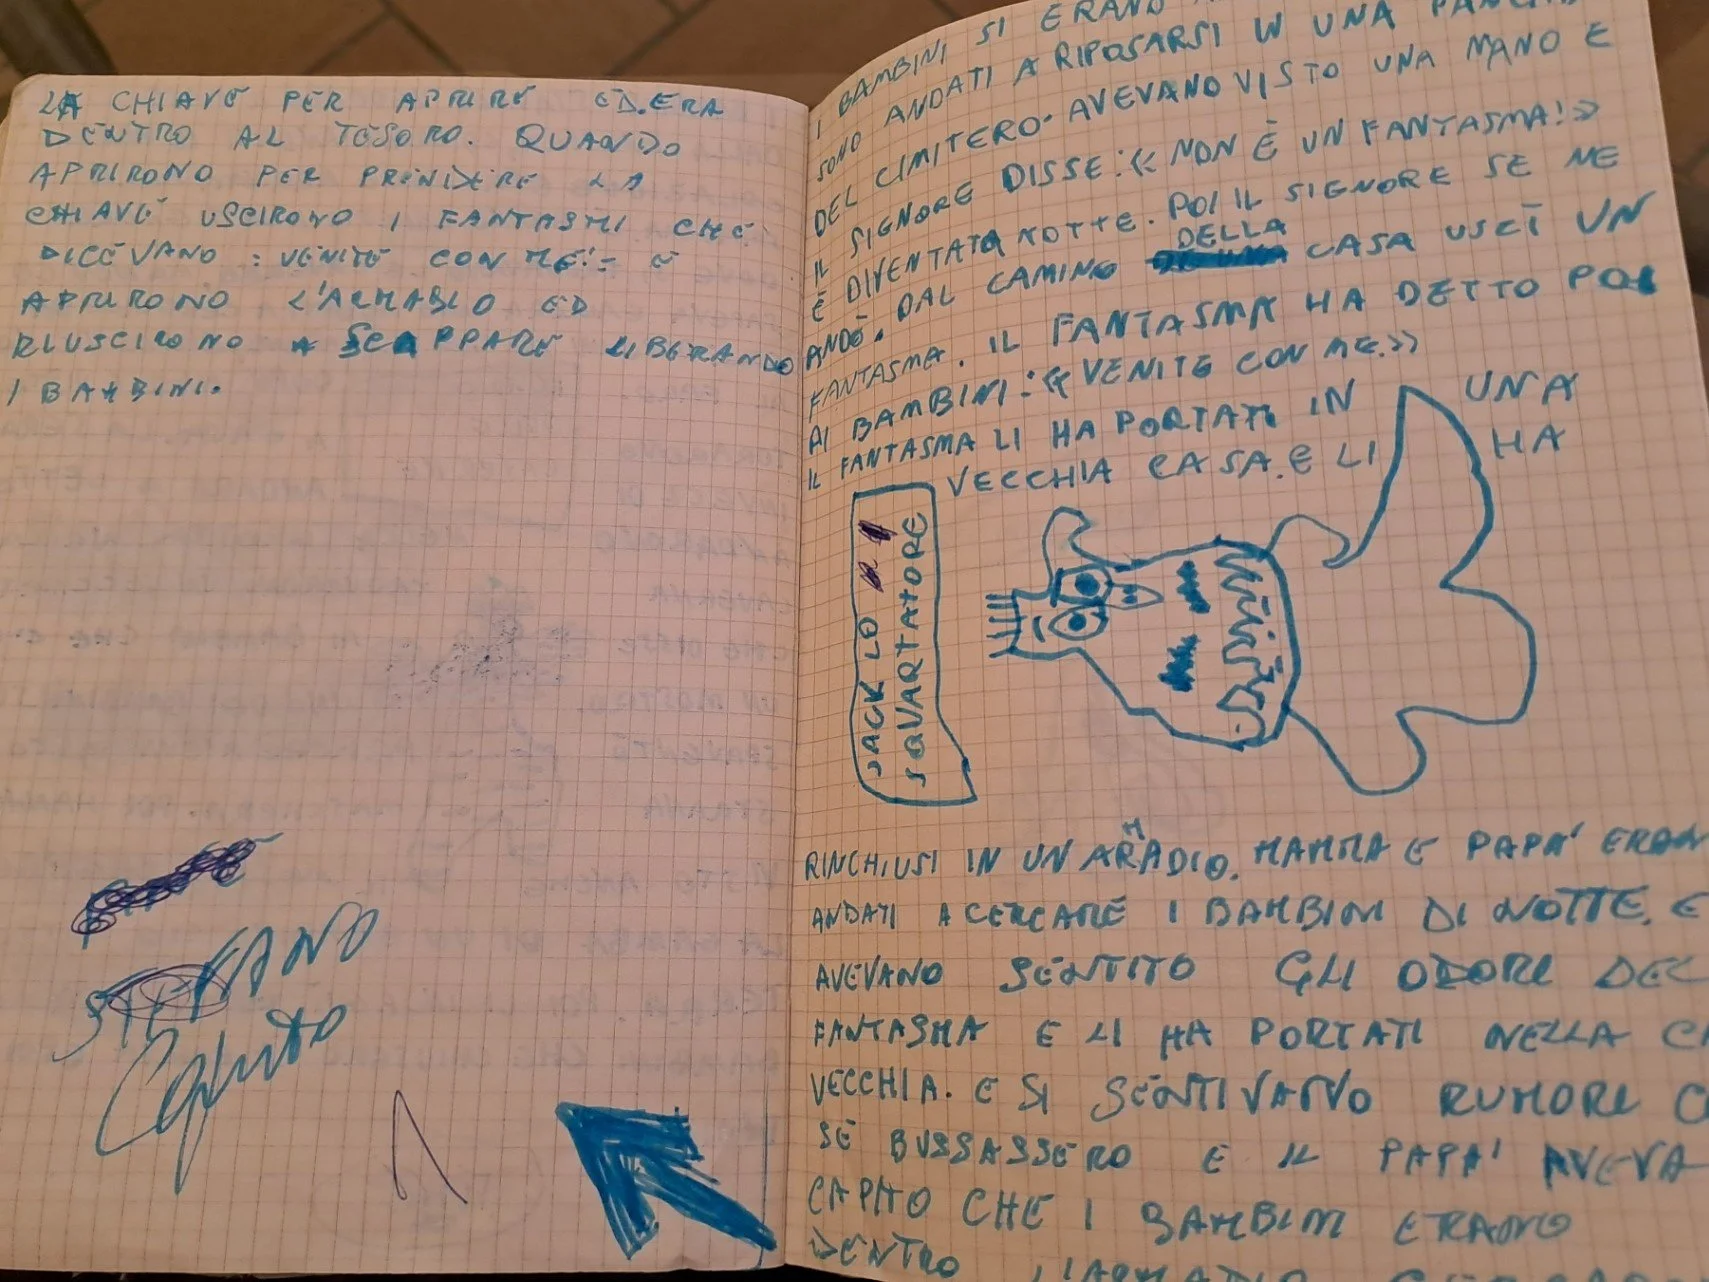 LA CHIAVE PER APRIRE ED.ERA
DENTRO AL TESORO. QUANDO
APRIRONO PER PRENDERE LA
CHIAVE USCIRONO I FANTASMI CHE
DICEVANO : VENITE CON ME! E
APRIRONO L'ARMADIO ED
RIUSCIRONO A SCAPPARE LIBERANDO
I BAMBINI.
STEFANO
Caputo
I BAMBINI SI ERANO
SONO ANDATI A RIPOSARSI IN UNA
DEL CIMITERO. AVEVANO VISTO UNA MANO E
IL SIGNORE DISSE:« NON È UN FANTASMA!»
E DIVENTATA NOTTE. POI IL SIGNORE SE NE
ANDÒ. DAL CAMINO DELLA CASA USCÌ UN
FANTASMA. IL FANTASMA HA DETTO POI
AI BAMBINI:« VENITE CON ME.»
IL FANTASMA LI HA PORTATI IN UNA
VECCHIA CASA. E LI HA
JACK LO
SQUARTATORE
RINCHIUSI IN UN ARMADIO. MAMMA E PAPA' ERAN
ANDATI A CERCARE I BAMBINI DI NOTTE. E
AVEVANO SENTITO GLI ODORI DEL
FANTASMA E LI HA PORTATI NELLA
VECCHIA. E SI SENTIVANO RUMORI
SE BUSSASSERO E IL PAPA' AVEVA
CAPITO CHE I BAMBINI ERANO
DENTRO L'ARMADIO